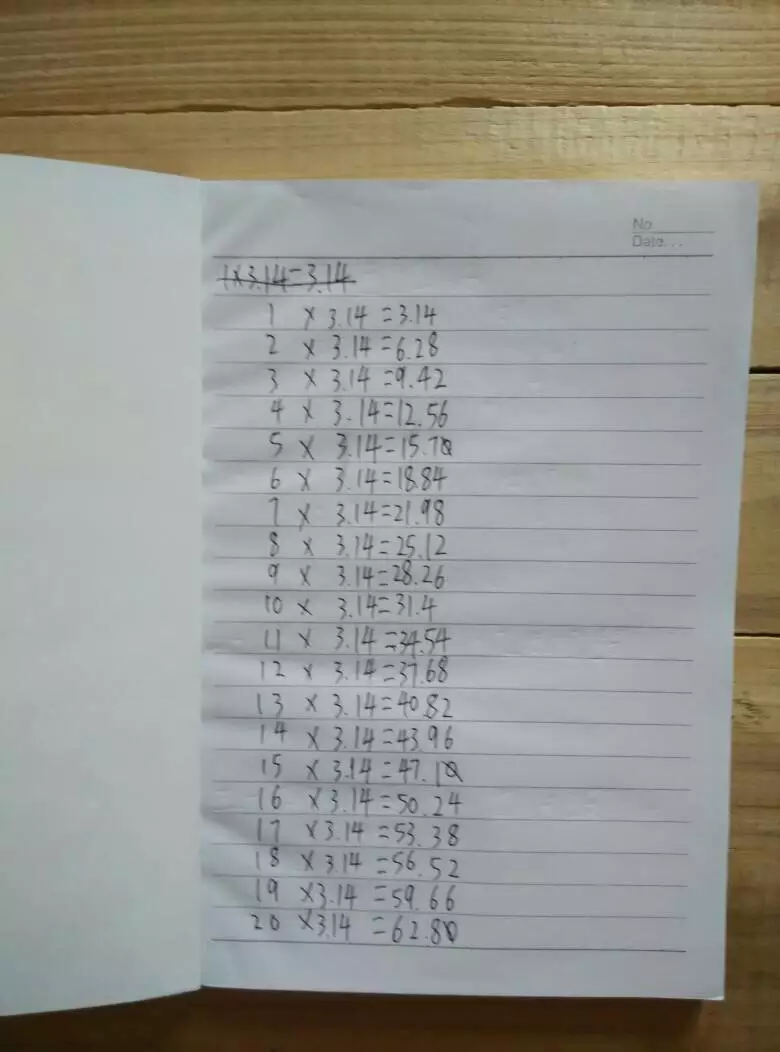 No
Date...
1×3.14=3.14
1 × 3.14=3.14
2 × 3.14=6.28
3 × 3.14=9.42
4 × 3.14=12.56
5 × 3.14=15.70
6 × 3.14=18.84
7 × 3.14=21.98
8 × 3.14=25.12
9 × 3.14=28.26
10 × 3.14=31.4
11 × 3.14=34.54
12 × 3.14=37.68
13 × 3.14=40.82
14 × 3.14=43.96
15 × 3.14=47.10
16 × 3.14=50.24
17 × 3.14=53.38
18 × 3.14=56.52
19 × 3.14=59.66
20 × 3.14=62.80